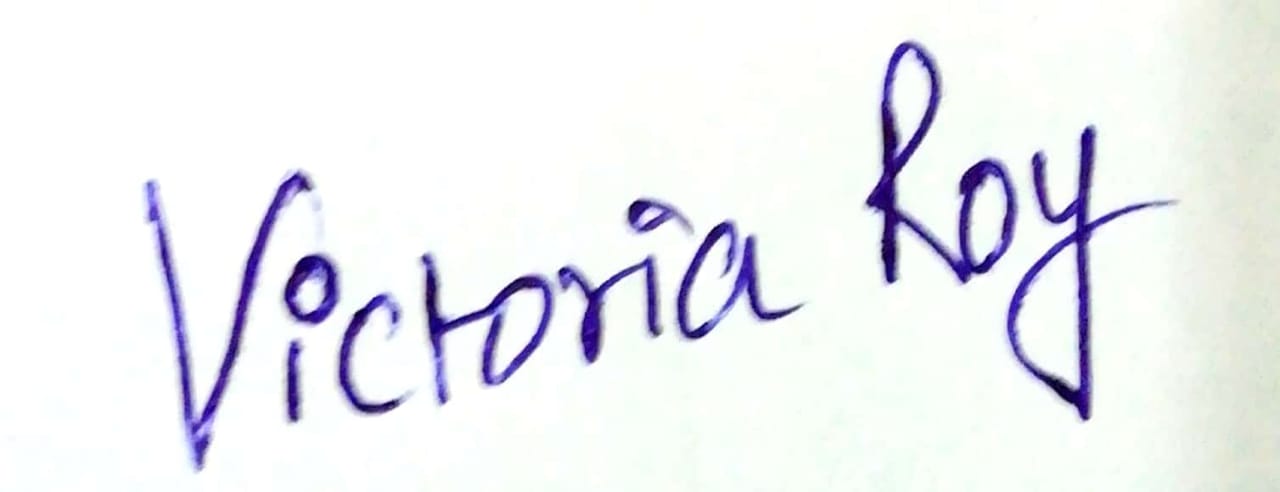 Victoria Roy